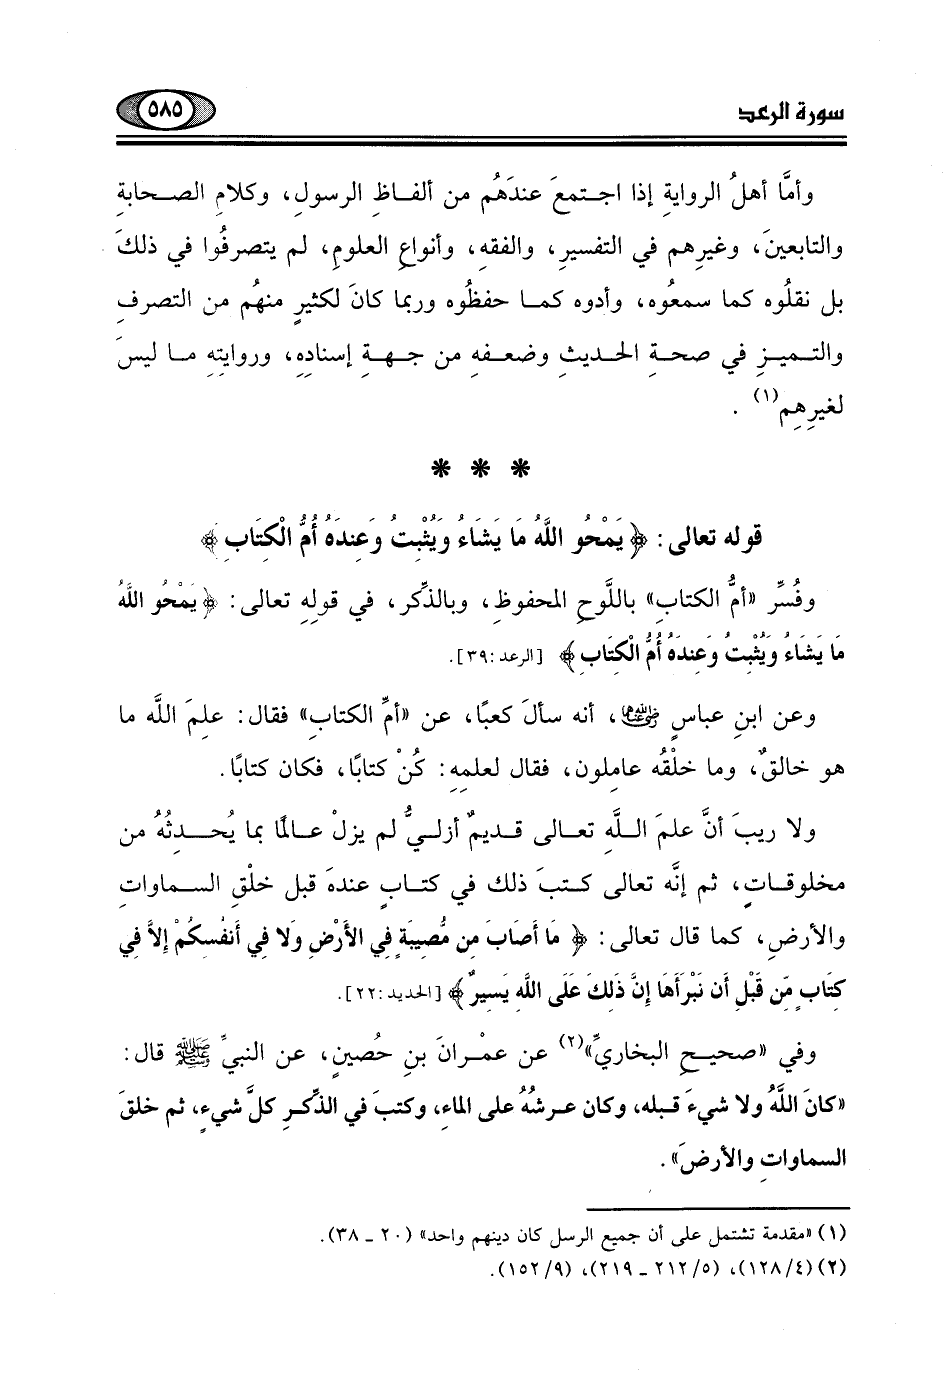 سورة الرعد
٥٨٥
وأمَّا أهلُ الروايةِ إذا اجتمعَ عندَهُم من ألفاظِ الرسولِ، وكلامِ الصحابةِ
والتابعينَ، وغيرِهم في التفسيرِ، والفقهِ، وأنواعِ العلومِ، لم يتصرفُوا في ذلكَ
بل نقلُوه كما سمعُوه، وأدوه كما حفظُوه وربما كانَ لكثيرٍ منهُم من التصرفِ
والتميزِ في صحةِ الحديثِ وضعفِه من جهةِ إسنادِه، وروايتِه ما ليسَ
لغيرِهِم(١) .
* * *
قوله تعالى: ﴿ يَمْحُو اللَّهُ مَا يَشَاءُ وَيُثْبِتُ وَعِندَهُ أُمُّ الْكِتَابِ ﴾
وفُسِّر «أمُّ الكتابِ» باللَّوحِ المحفوظِ، وبالذِّكر، في قولِه تعالى: ﴿ يَمْحُو اللَّهُ
مَا يَشَاءُ وَيُثْبِتُ وَعِندَهُ أُمُّ الْكِتَابِ ﴾ [الرعد:٣٩].
وعن ابنِ عباسٍ رضي الله عنهما، أنه سألَ كعبًا، عن «أمِّ الكتابِ» فقال: علمَ الله ما
هو خالقٌ، وما خلْقُه عاملون، فقال لعلمِه: كُنْ كتابًا، فكان كتابًا.
ولا ريبَ أنَّ علمَ اللَّهِ تعالى قديمٌ أزليٌّ لم يزلْ عالمًا بما يُحدثُهُ من
مخلوقاتٍ، ثم إنَّه تعالى كتبَ ذلك في كتابٍ عندَه قبل خلْقِ السماواتِ
والأرضِ، كما قال تعالى: ﴿ مَا أَصَابَ مِن مُّصِيبَةٍ فِي الأَرْضِ وَلا فِي أَنفُسِكُمْ إِلاَّ فِي
كِتَابٍ مِّن قَبْلِ أَن نَّبْرَأَهَا إِنَّ ذَلِكَ عَلَى اللَّهِ يَسِيرٌ ﴾ [الحديد:٢٢].
وفي «صحيحِ البخاريِّ»(٢) عن عمْرانَ بنِ حُصينٍ، عن النبيِّ ﷺ قال:
«كانَ اللَّهُ ولا شيءَ قبله، وكان عرشُهُ على الماءِ، وكتبَ في الذِّكرِ كلَّ شيءٍ، ثم خلقَ
السماواتِ والأرضَ».
(١) «مقدمة تشتمل على أن جميع الرسل كان دينهم واحد» (٢٠ ـ ٣٨).
(٢) (١٢٨/٤)، (٢١٢/٥ ـ ٢١٩)، (١٥٢/٩).